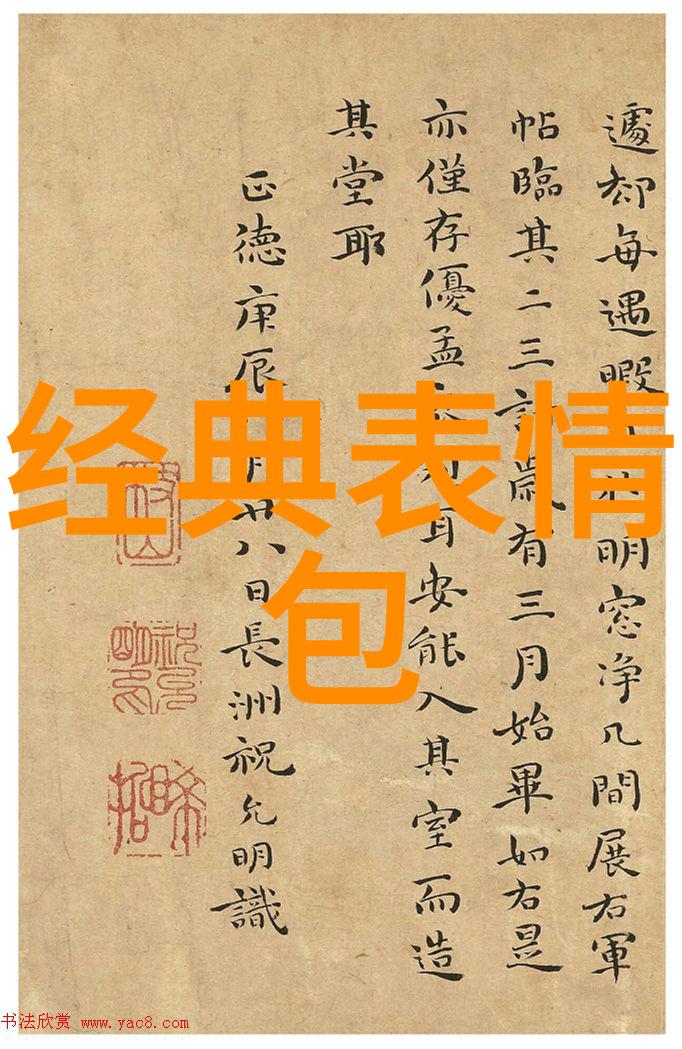 遽却每遇暇於明窓净几間展右軍
帖臨其二三計歲有三月始畢如右是
亦僅存優孟衣耳安能入其室而造
其堂耶
正德庚辰月廿八日長洲祝允明識
经典表情
包
书法欣赏 www.yac8.com